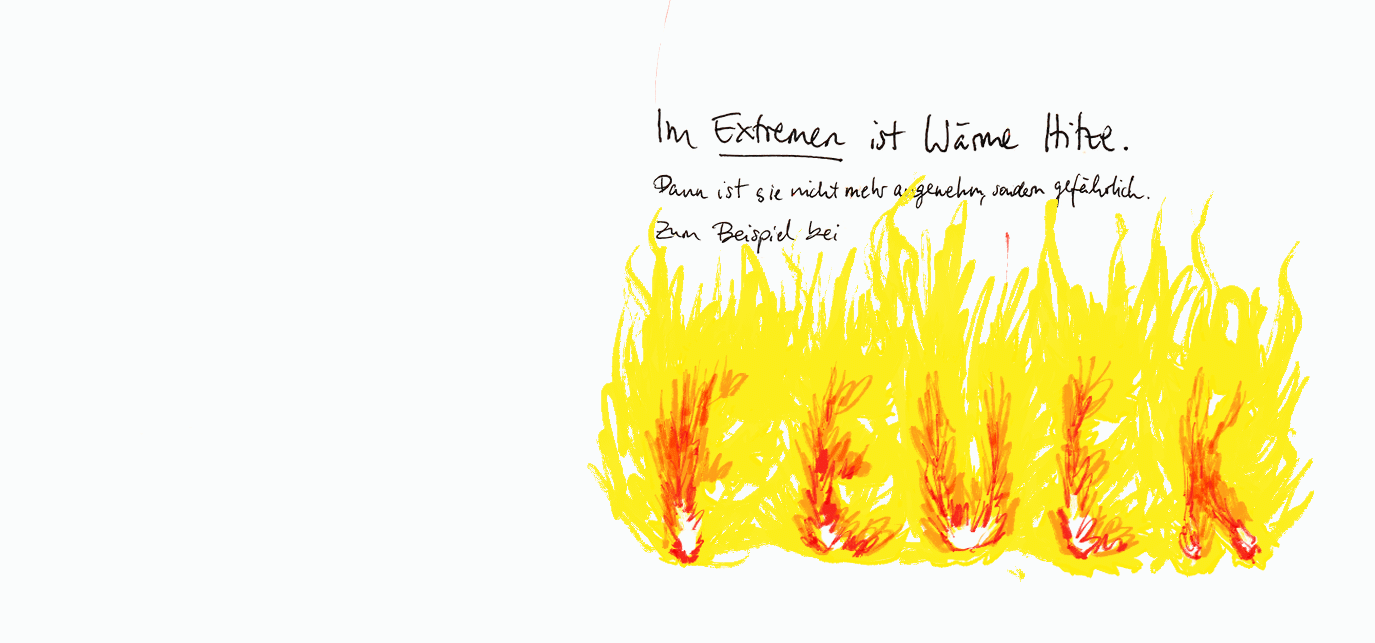 Im Extremen ist Wärme Hitze.
Dann ist sie nicht mehr angenehm, sondern gefährlich.
Zum Beispiel bei
FEUER